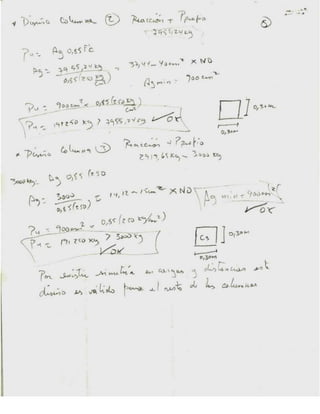 * Diseño Columna ② Reacción + Ppropio
7955,24 kg
Pu = Ag 0,55 f'c
Ag = 7955,24 kg / 0,55 (250 kg/cm²) = 57,41 ~ cm² × NO
Ag min = 900 cm²
Pu = 900 cm² · 0,85 (250 kg/cm²)
Pu = 191250 kg > 7955,24 kg ✓ OK
0,30m
0,30m
* Diseño Columna ③ Reacción + Ppropio
2919,65 kg ~ 3000 kg
3000 kg = Ag 0,55 (250)
Ag = 3000 / 0,85 (250) = 14,12 ~ 15 cm² × NO
Ag min = 900 cm² ✓ OK
Pu = 900 cm² · 0,85 (250 kg/cm²)
Pu = 191250 kg > 3000 kg ✓ OK
C3
0,30m
0,30m
Por existir simetría en cargas y distancias este
diseño es válido para el resto de las columnas